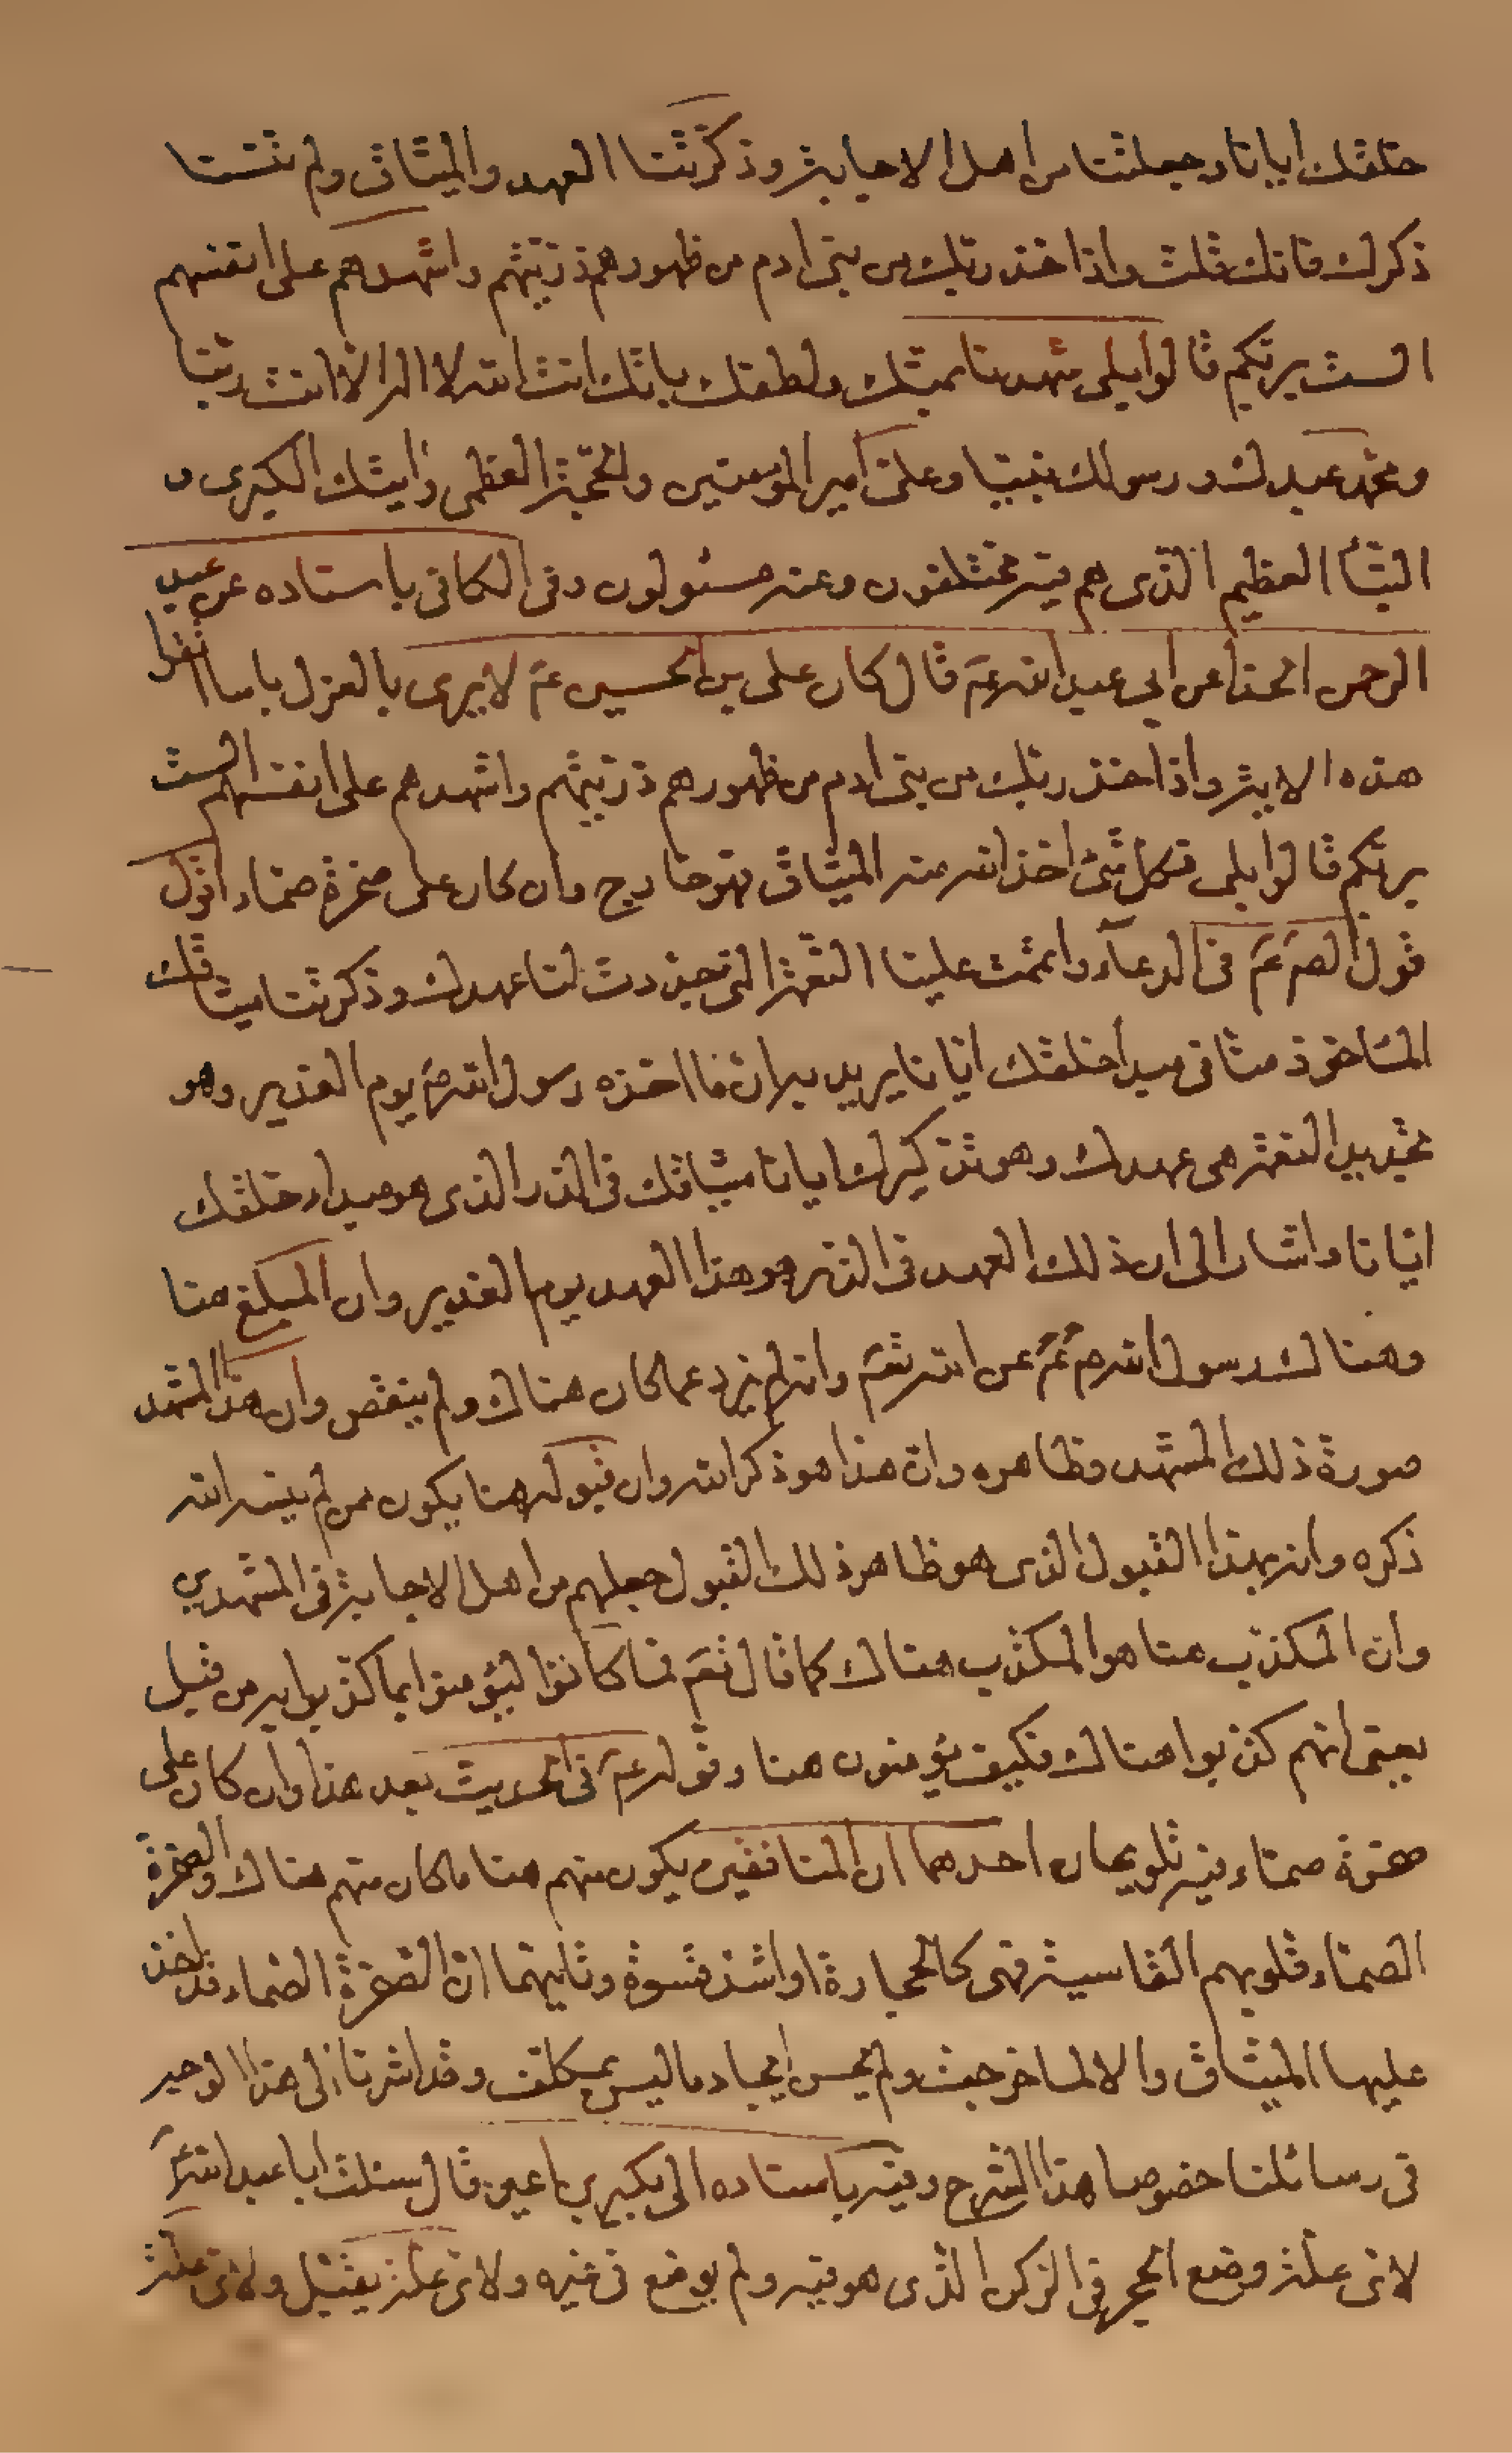 خلقك ايانا وجعلتنا من اهل الاجابة وذكرتنا العهد والميثاق ولم تنسنا
ذكرك فانك قلت واذ اخذ ربك من بني ادم من ظهورهم ذريتهم واشهدهم على انفسهم
الست بربكم قالوا بلى شهدنا بمنك ولطفك بانك انت الله لا اله الا انت ربنا
ومحمد عبدك ورسولك نبينا وعلي امير المؤمنين والحجة العظمى وايتك الكبرى و
النبأ العظيم الذى هم فيه مختلفون وعنه مسئولون وفى الكافى باسناده عن عبد
الرحمن الحذا عن ابي عبد الله عم قال كان على بن الحسين عم لا يرى بالعزل باسا اتقرا
هذه الاية واذ اخذ ربك من بنى ادم من ظهورهم ذريتهم واشهدهم على انفسهم الست
بربكم قالوا بلى فكل شئ اخذ الله منه الميثاق فهو خارج وان كان على صخرة صماء اقول
قول الصم عم فى الدعآء واتممت علينا النعمة التى جددت لنا عهدك وذكرتنا ميثاقك
المـٔاخوذ منا فى مبدأ خلقك ايانا يريد به ان ما اخذه رسول الله ص يوم الغدير وهو
تجديد النعمة هى عهدك وهو تذكيرك ايانا ميثاقك فى الذر الذى هو مبدء خلقك
ايانا واشار الى ان ذلك العهد فى الذر هو هذا العهد يوم الغدير وان المبلغ هنا
وهنالك رسول الله ص عم عن الله تعم وانه لم يزد عما كان هناك ولم ينقص وان هذا المشهد
صورة ذلك المشهد وظاهره وان هذا هو ذكر الله وان قبوله هنا يكون ممن لم ينسه الله
ذكره وانه بهذا القبول الذى هو ظاهر ذلك القبول جعلهم من اهل الاجابة فى المشهدين
وان المكذب هنا هو المكذب هناك كما قال تعم فما كانوا ليؤمنوا بما كذبوا به من قبل
يعنى انهم كذبوا هناك فكيف يؤمنون هنا وقوله عم فى الحديث بعد هذا وان كان على
صخرة صماء فيه تلويحان احدهما ان المنافقين يكون منهم هنا ما كان منهم هناك والصخرة
الصماء قلوبهم القاسية فهى كالحجارة او اشد قسوة وثانيهما ان الصخرة الصماء قد اخذ
عليها الميثاق والا لما خرجت ولم يحسن ايجاد ما ليس بمكلف وقد اشرنا الى هذا الوجه
فى رسائلنا خصوصا هذا الشرح وفيه باسناده الى بكير بن اعين قال سئلت ابا عبد الله عم
لاى علة وضع الحجر فى الركن الذى هو فيه ولم يوضع فى غيره ولاى علة يقبل ولاى علة